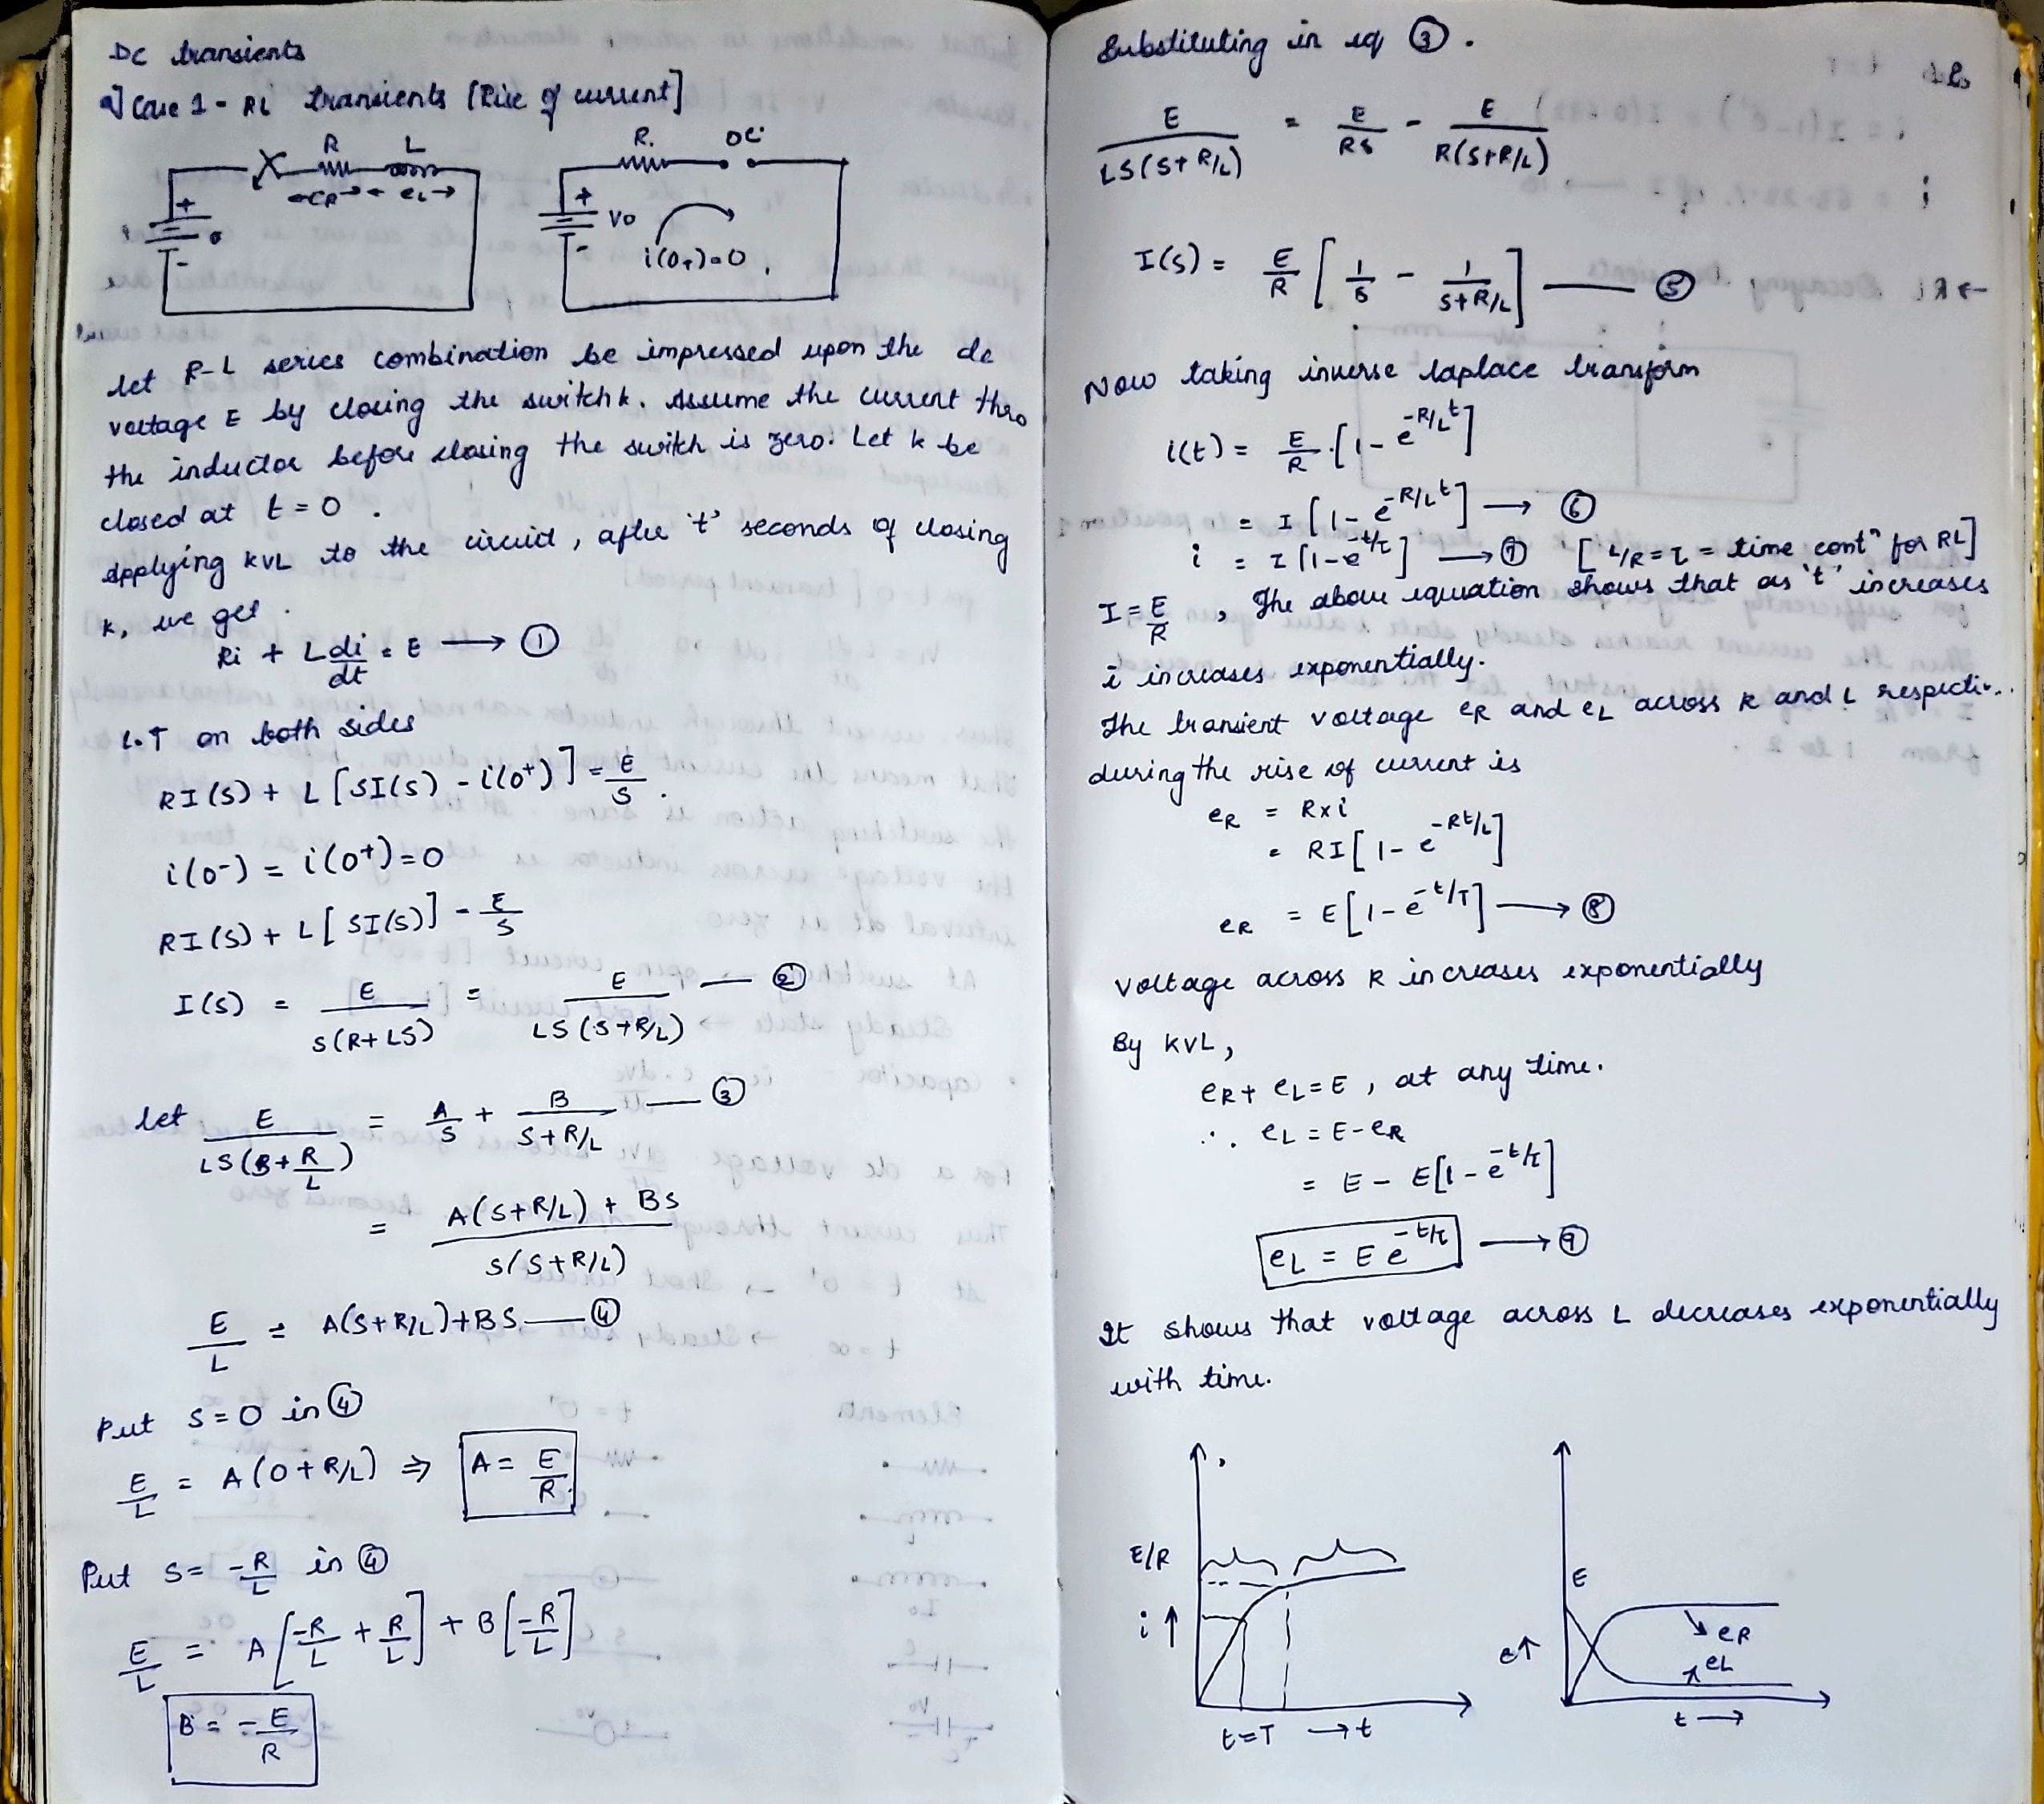 DC transients
a] Case 1 - RL transients [Rise of current]
R L
eR eL
+
-
R. OC
+
V0
-
i(0+)=0
Let R-L series combination be impressed upon the dc
voltage E by closing the switch k. Assume the current thro
the inductor before closing the switch is zero. Let k be
closed at t = 0 .
Applying KVL to the circuit, after 't' seconds of closing
k, we get .
Ri + L di/dt = E → ①
L.T on both sides
RI(S) + L [SI(S) - i(0⁺)] = E/S .
i(0-) = i(0+) = 0
RI(S) + L[SI(S)] - E/S
I(S) = E/S(R+LS) = E/LS(S+R/L) — ②
Let E/LS(S+R/L) = A/S + B/S+R/L — ③
= A(S+R/L) + BS/S(S+R/L)
E/L = A(S+R/L)+BS — ④
Put S=0 in ④
E/L = A(0+R/L) ⇒ A = E/R
Put S= -R/L in ④
E/L = A[-R/L + R/L] + B[-R/L]
B = -E/R
Substituting in eq ③ .
E/LS(S+R/L) = E/RS - E/R(S+R/L)
I(S) = E/R [1/S - 1/S+R/L] — ⑤
Now taking inverse laplace transform
i(t) = E/R .[1- e^-R/L t]
= I [1- e^-R/L t] → ⑥
i = I [1-e^-t/τ] → ⑦ [L/R = τ = time contⁿ for RL]
I = E/R , The above equation shows that as 't' increases
i increases exponentially.
The transient voltage eR and eL across R and L
during the rise of current is
eR = R×i
= RI[1- e^-Rt/L]
eR = E[1-e^-t/T] → ⑧
voltage across R increases exponentially
By KVL,
eR + eL = E , at any time.
∴ eL = E-eR
= E - E[1-e^-t/τ]
eL = E e^-t/τ → ⑨
It shows that voltage across L decreases exponentially
with time.
E/R
i ↑
t=T → t
E
e↑
eR
eL
t →